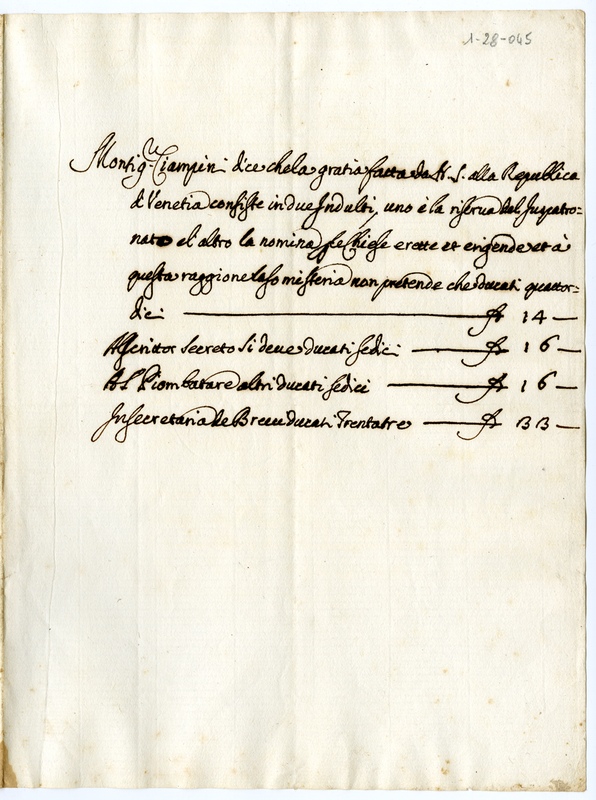 1-28-045
Monsig.r Ciampini dice che la gratia fatta da N. S. alla Republica
di Venetia consiste in due Indulti, uno è la riserva del Juspatro-
nato el altro la nomina Chiese erette et erigende et à
questa raggione la so misteria non pretende che ducati quattor-
dici 14 —
Al Scrittor Secreto si deve ducati sedici 16 —
Al Piombatore altri ducati sedici 16 —
In secretaria de Brevi ducati Trentatre 33 —